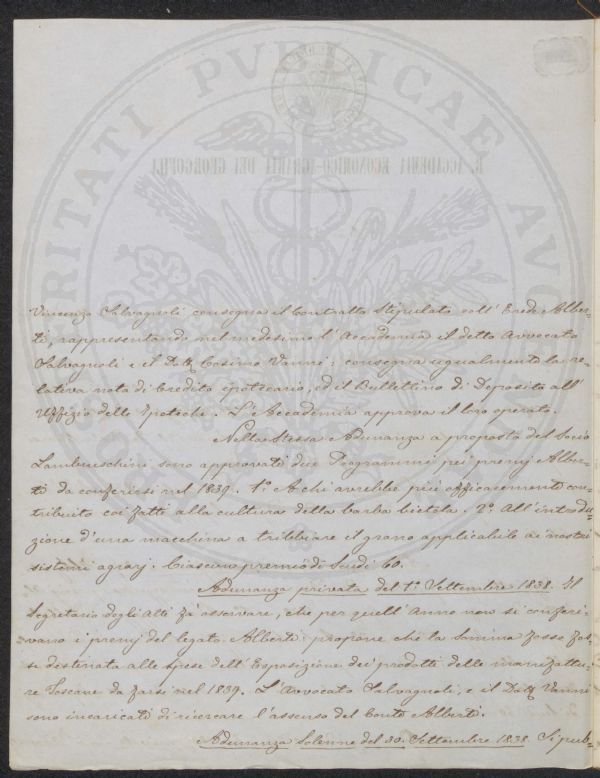 PROSPERITATI PUBLICAE AUGENDAE
R. ACCADEMIA ECONOMICO-AGRARIA DEI GEORGOFILI
Vincenzo Salvagnoli consegna il Contratto Stipulato coll' Erede Alber-
ti, rappresentando nel medesimo l' Accademia il detto Avvocato
Salvagnoli e il Dott. Cosimo Vanni; consegna ugualmente la re-
lativa nota di Credito ipotecario, ed il Bullettino di Deposito all'
Uffizio delle Ipoteche. L' Accademia approva il loro operato.
Nella Stessa Adunanza a proposta del Socio
Lambruschini sono approvati due Programmi pei premj Alber-
ti da conferirsi nel 1839. 1° A chi avrebbe più efficacemente con-
tribuito coi fatti alla cultura della barba bietola. 2° All' introdu-
zione d' una macchina a tribbiare il grano applicabile ai nostri
sistemi agrarj. Ciascuno premio di Scudi 60.
Adunanza privata del 1° Settembre 1838. Il
Segretario degli Atti fa osservare, che per quell' Anno non si conferi-
vano i premj del legato Alberti: propone che la Somma fosse fos-
se destinata alle spese dell' Esposizione dei prodotti delle manifattu-
re Toscane da farsi nel 1839. L' Avvocato Salvagnoli, e il Dott. Vanni
sono incaricati di ricercare l' assenso del Conte Alberti.
Adunanza Solenne del 30 Settembre 1838. Si pub-